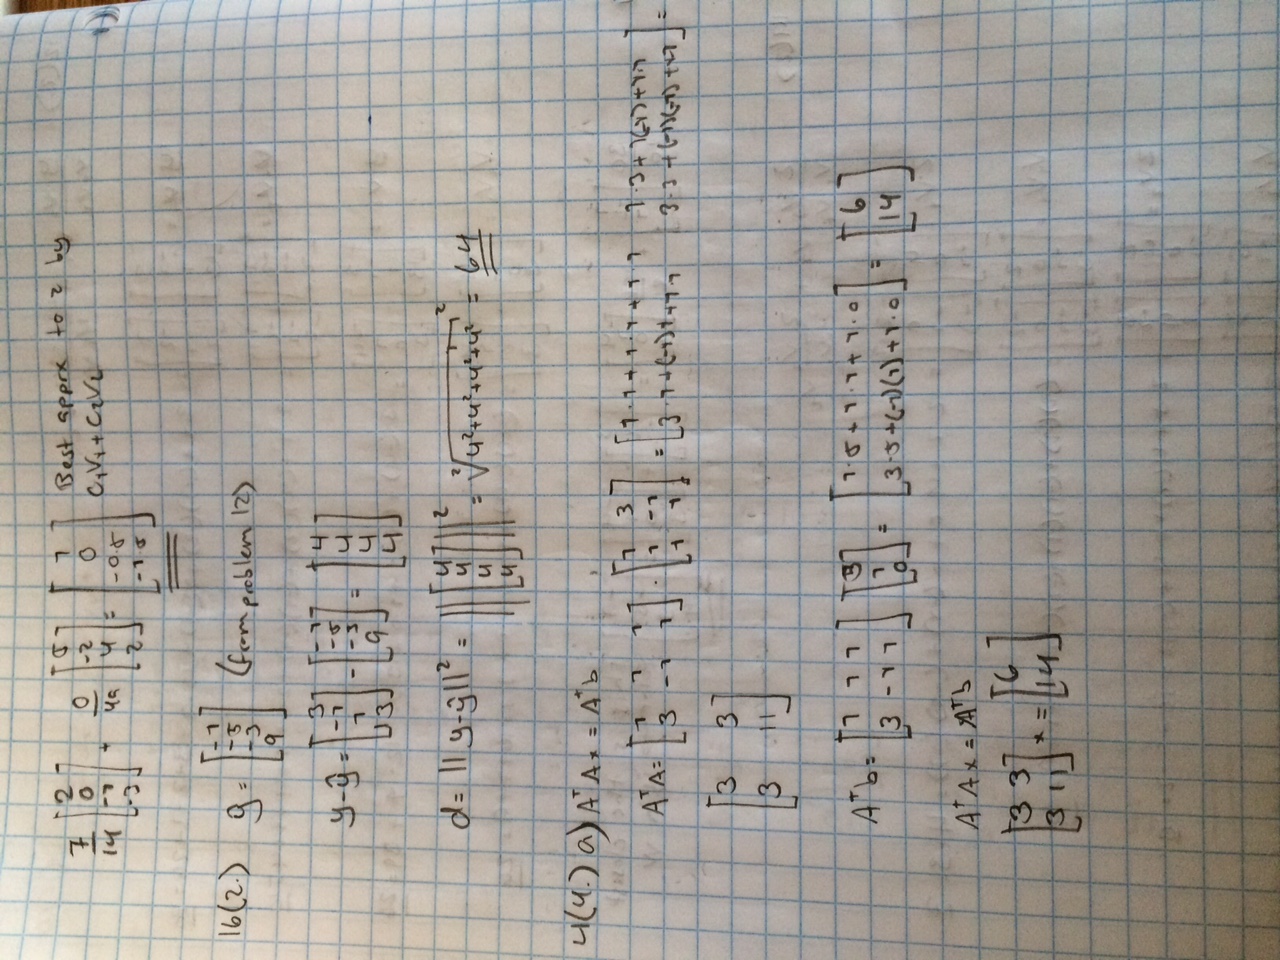 7/14 [2 0 -1 -3] + 0/49 [5 -2 4 2] = [1 0 -0.5 -1.5] Best apprx to z by
c₁v₁ + c₂v₂
16(2.) ŷ = [-1 -5 -3 9] (from problem 12)
y-ŷ = [3 -1 1 13] - [-1 -5 -3 9] = [4 4 4 4]
d = ||y-ŷ||² = ||[4 4 4 4]||² = ²√(4²+4²+4²+4²)² = 64
4(4.) a) AᵀAx = Aᵀb
AᵀA = [1 1 1; 3 -1 1] · [1 3; 1 -1; 1 1] = [1·1+1·1+1·1 1·3+1(-1)+1·1; 3·1+(-1)1+1·1 3·3+(-1)(-1)+1·1] =
[3 3; 3 11]
Aᵀb = [1 1 1; 3 -1 1] [5 1 0] = [1·5+1·1+1·0; 3·5+(-1)(1)+1·0] = [6 14]
AᵀAx = Aᵀb
[3 3; 3 11] x = [6 14]